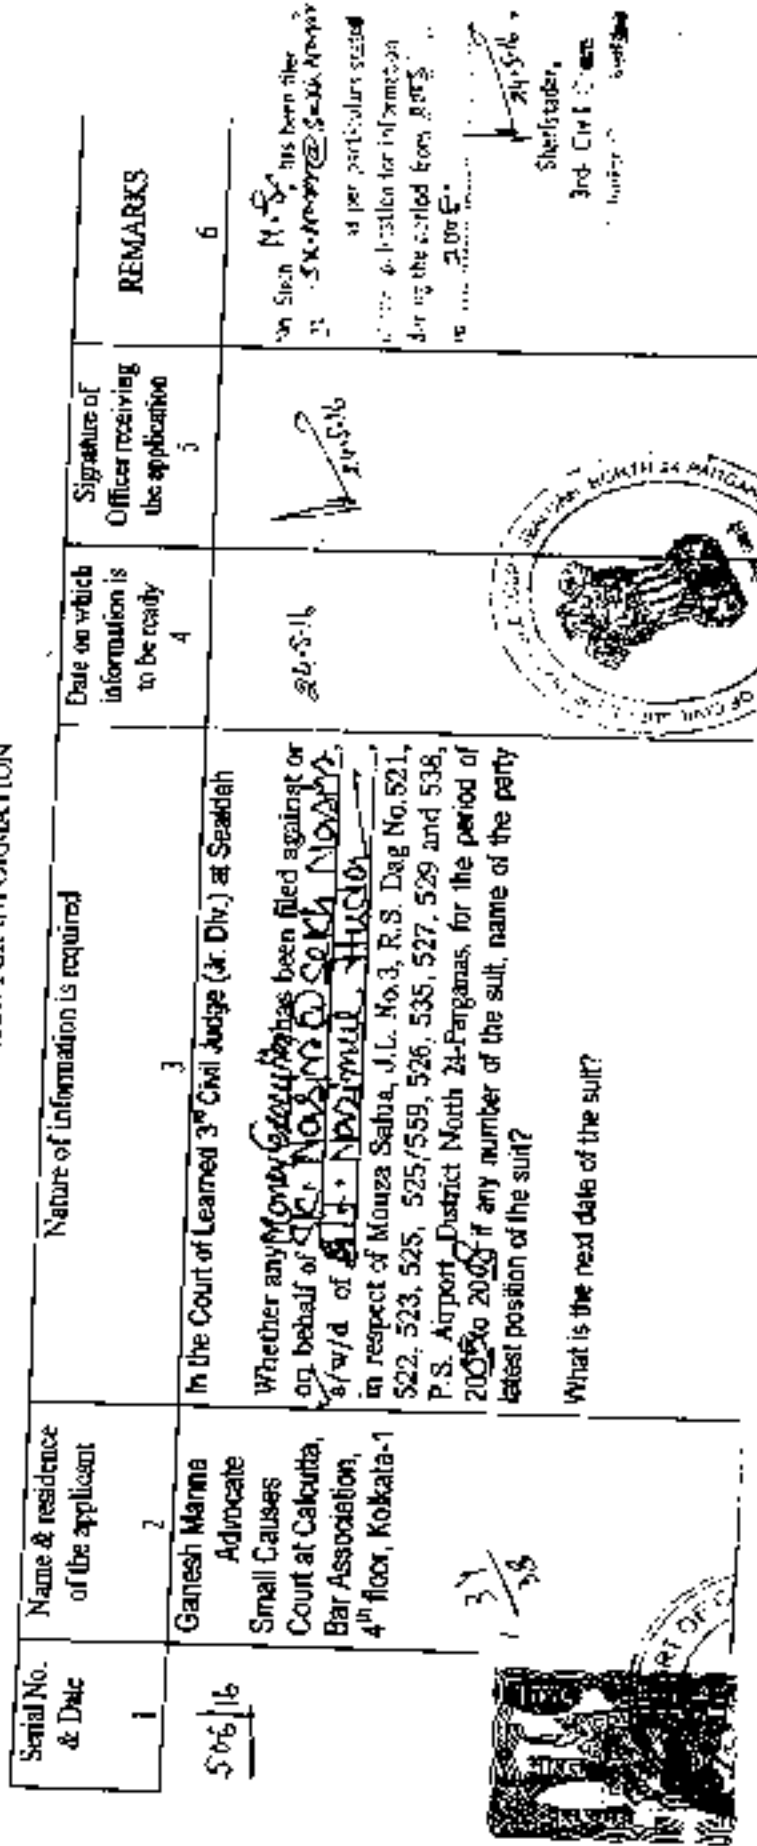 Serial No.
& Date
1
Name & residence
of the applicant
2
Nature of information is required
3
Date on which
information is
to be ready
4
Signature of
Officer receiving
the application
5
REMARKS
6
506/16
Ganesh Manna
Advocate
Small Causes
Court at Calcutta,
Bar Association,
4th floor, Kolkata-1
In the Court of Learned 3rd Civil Judge (Jr. Div.) at Sealdah
Whether any Money has been filed against or
on behalf of Sk. Nasim @ Sekh Nasim,
s/w/d. of
in respect of Mouza Salua, J.L. No.3, R.S. Dag No.521,
522, 523, 525, 525/559, 526, 535, 527, 529 and 538,
P.S. Airport, District North 24-Parganas, for the period of
to if any number of the suit, name of the party
latest position of the suit?
What is the next date of the suit?
24-5-16
24-5-16
has been filed
as per particulars stated
for information
during the period from 2005
24-5-16
Sheristadar,
3rd Civil
NORTH 24 PARGAN
OF CIVIL
RT OF C